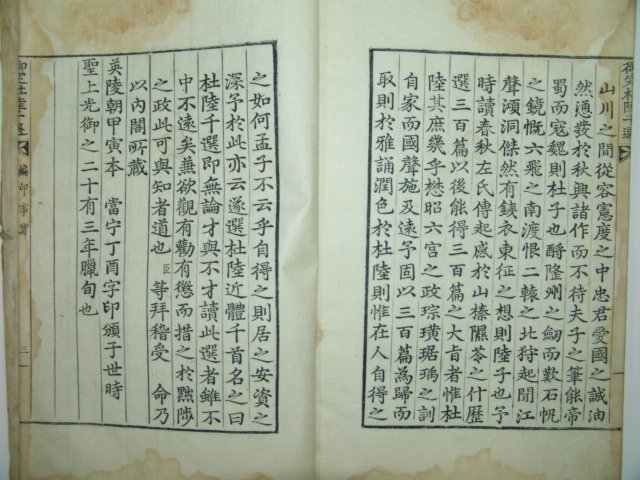 山川之間從容憲度之中忠君愛國之誠油
然懣發於秋興諸作而不待夫子之筆能帝
蜀而寇魏則杜子也酹隆州之劒而歎石帆
之鏡慨六飛之南渡恨二轅之北狩起聞江
聲澒洞傑然有鐵衣東征之想則陸子也予
時讀春秋左氏傳起感於山榛隰苓之什歷
選三百篇以後能得三百篇之大旨者惟杜
陸其庶幾乎懋昭六宮之政琮璜琚瑀之訓
自家而國聲施及遠予固以三百篇為歸而
取則於雅誦潤色於杜陸則惟在人自得之
之如何孟子不云乎自得之則居之安資之
深予於此亦云遂選杜陸近體千首名之曰
杜陸千選即無論才與不才讀此選者雖不
中不遠矣兼欲觀有勸有懲而措之於黜陟
之政此可與知者道也 臣等拜稽受 命乃
以內閣所藏
英陵朝甲寅本 當宁丁酉字印頒于世時
聖上光御之二十有三年臘旬也
編印事實
三